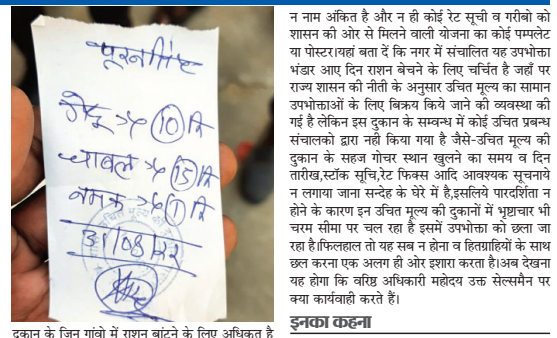 पूरनसिंह
गेहूं 10 कि
चावल 15 कि
नमक 1 कि
31/08/22
दुकान के जिन गांवो में राशन बांटने के लिए अधिकृत है
न नाम अंकित है और न ही कोई रेट सूची व गरीबो को
शासन की ओर से मिलने वाली योजना का कोई पम्पलेट
या पोस्टर।यहां बता दें कि नगर में संचालित यह उपभोक्ता
भंडार आए दिन राशन बेचने के लिए चर्चित है जहाँ पर
राज्य शासन की नीती के अनुसार उचित मूल्य का सामान
उपभोक्ताओं के लिए बिक्रय किये जाने की व्यवस्था की
गई है लेकिन इस दुकान के सम्वन्ध में कोई उचित प्रबन्ध
संचालको द्वारा नही किया गया है जैसे-उचित मूल्य की
दुकान के सहज गोचर स्थान खुलने का समय व दिन
तारीख,स्टॉक सूचि,रेट फिक्स आदि आवश्यक सूचनाये
न लगाया जाना सन्देह के घेरे में है,इसलिये पारदर्शिता न
होने के कारण इन उचित मूल्य की दुकानों में भृष्टाचार भी
चरम सीमा पर चल रहा है इसमें उपभोक्ता को छला जा
रहा है।फिलहाल तो यह सब न होना व हितग्राहियों के साथ
छल करना एक अलग ही ओर इशारा करता है।अब देखना
यह होगा कि वरिष्ठ अधिकारी महोदय उक्त सेल्समैन पर
क्या कार्यवाही करते हैं।
इनका कहना